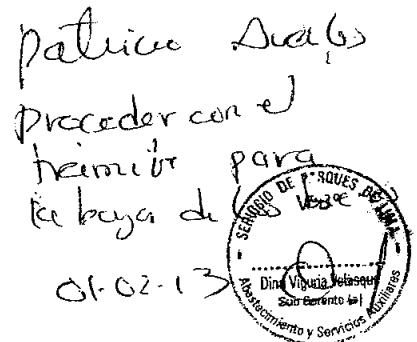 Patricia
Proceder con el
tramite para
la baja de los
01-02-13
SERVICIO DE PARQUES DE LIMA
Dina Viguria Velasque
Sub Gerente (e)
Abastecimiento y Servicios Auxiliares